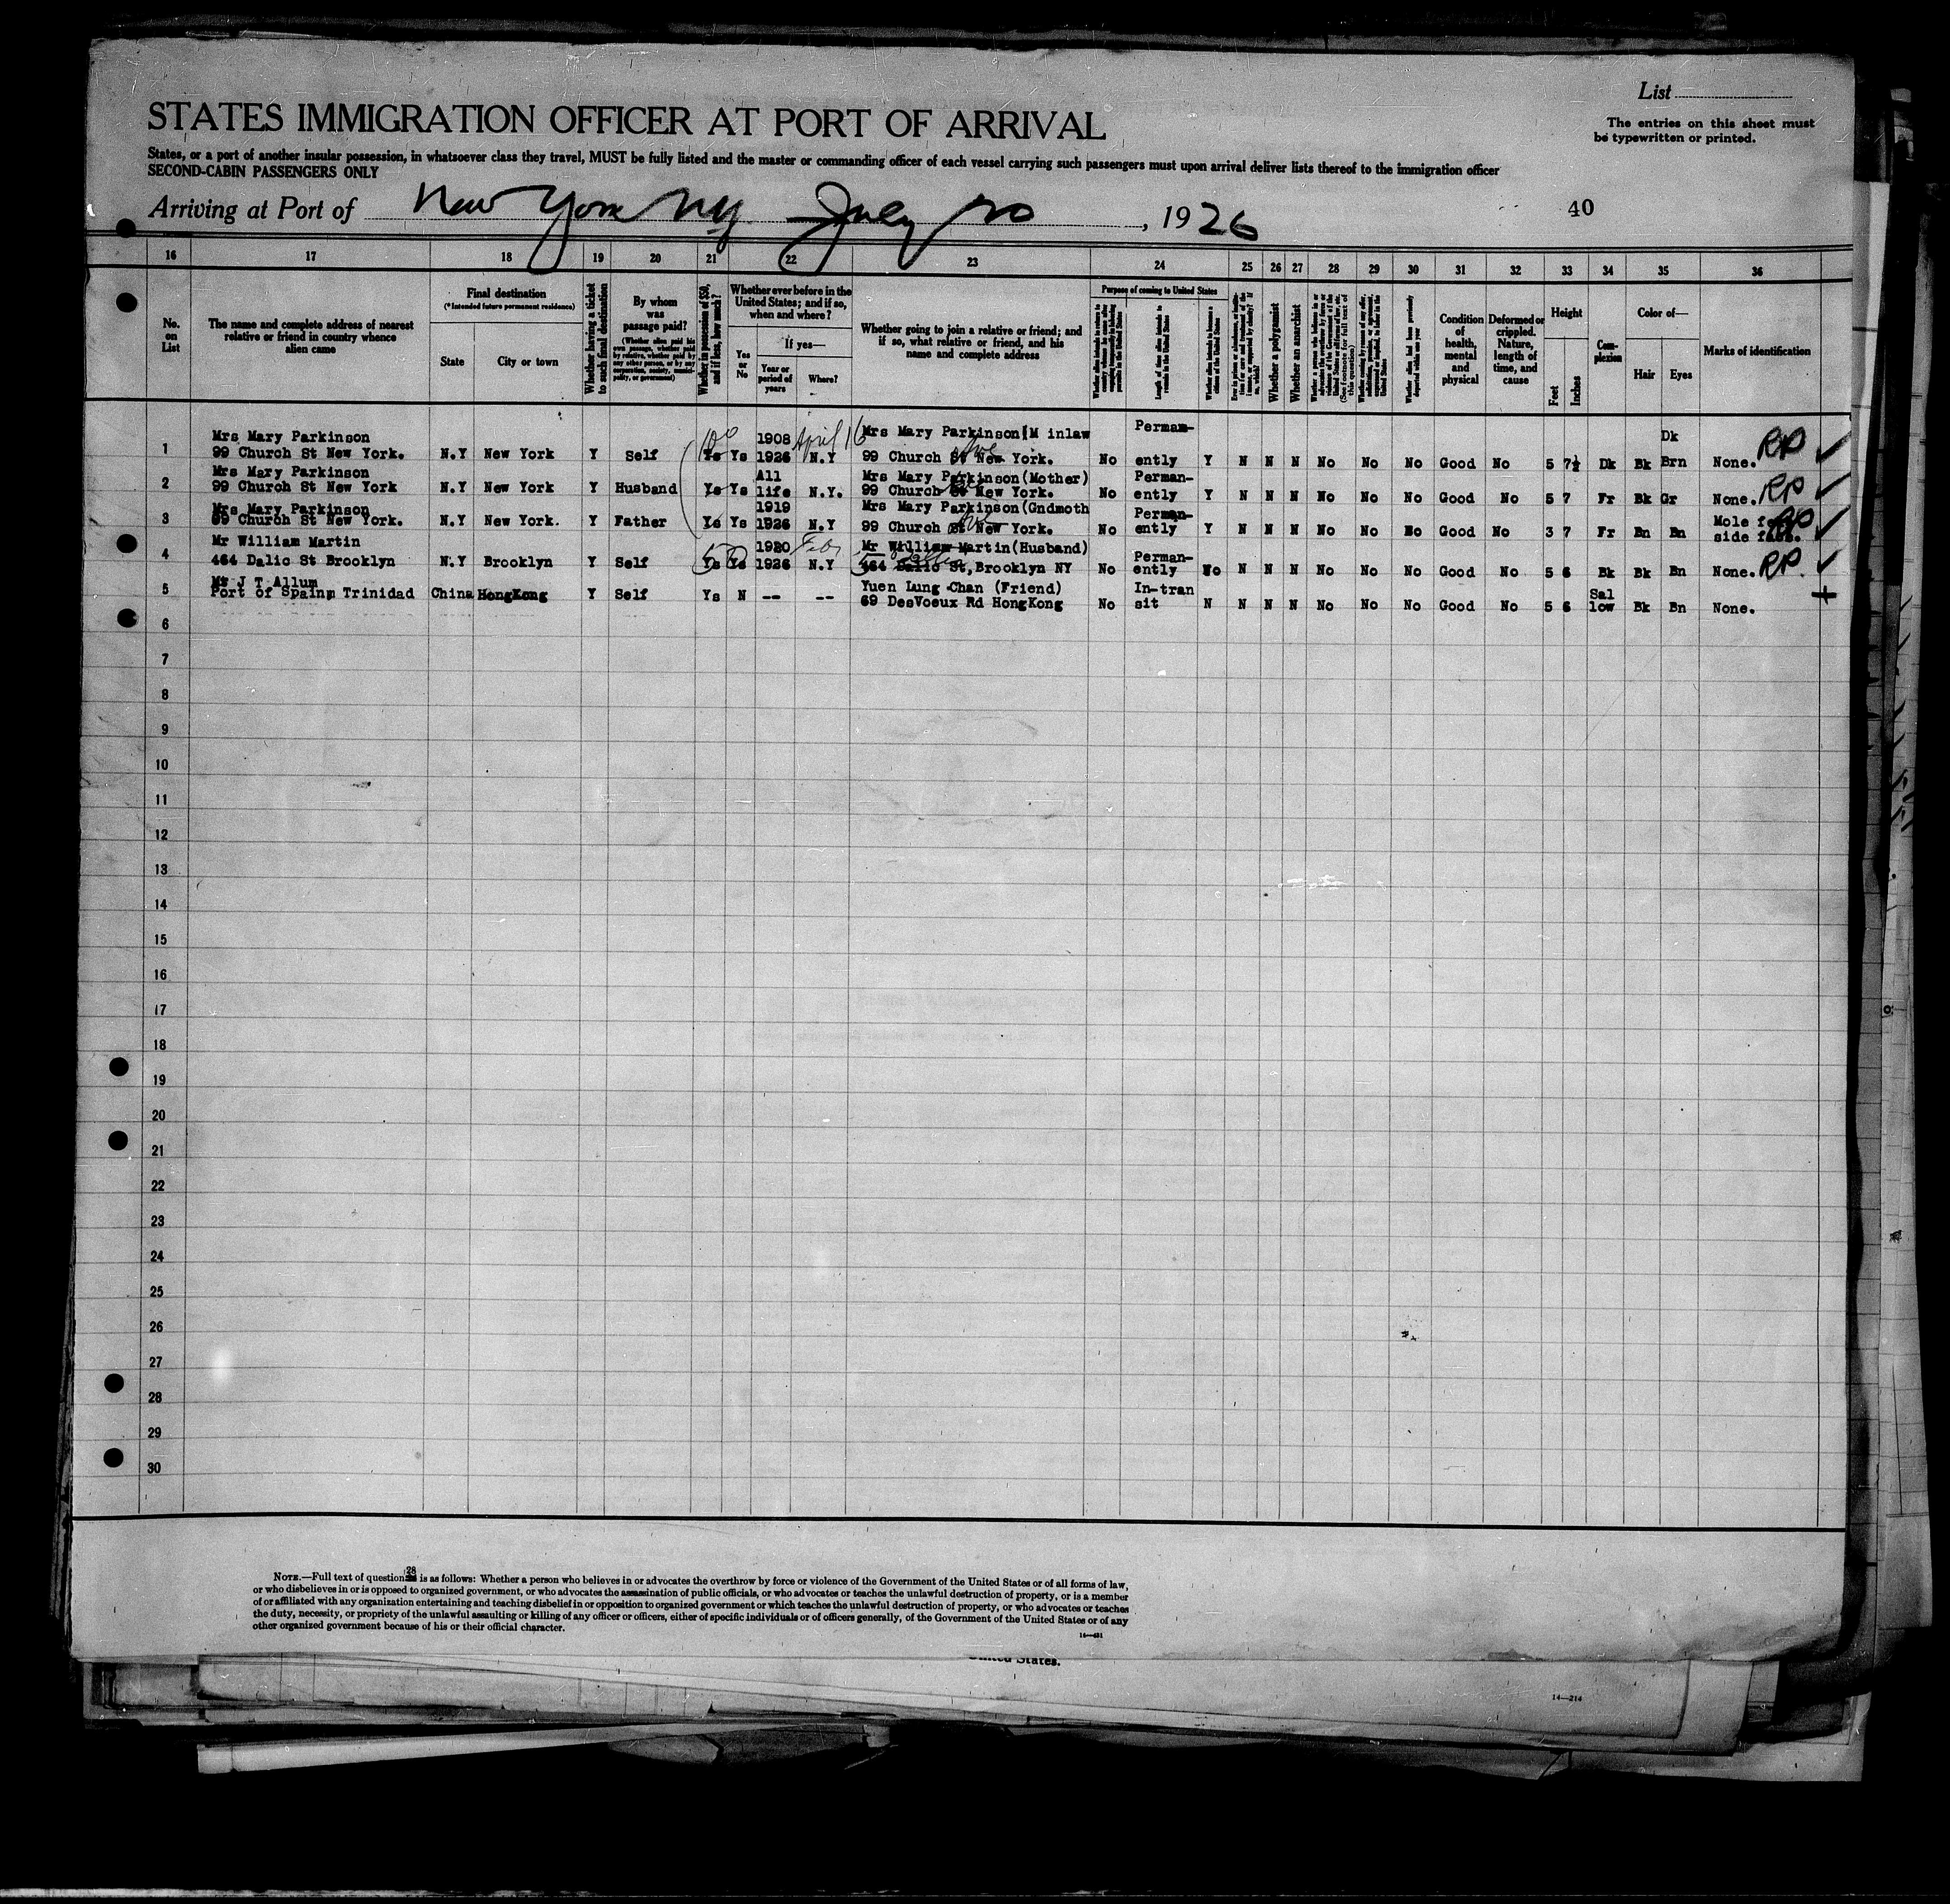 List
STATES IMMIGRATION OFFICER AT PORT OF ARRIVAL
The entries on this sheet must
be typewritten or printed.
States, or a port of another insular possession, in whatsoever class they travel, MUST be fully listed and the master or commanding officer of each vessel carrying such passengers must upon arrival deliver lists thereof to the immigration officer
SECOND-CABIN PASSENGERS ONLY
Arriving at Port of New York NY July 20, 1926
40
16 17 18 19 20 21 22 23 24 25 26 27 28 29 30 31 32 33 34 35 36
No. on List
The name and complete address of nearest relative or friend in country whence alien came
Final destination
(*Intended future permanent residence)
State
City or town
Whether having a ticket to such final destination
By whom was passage paid?
(Whether alien paid his own passage, whether paid by relative, whether paid by any other person, or by any corporation, society, municipality, or government)
Whether in possession of $50, and if less, how much?
Whether ever before in the United States; and if so, when and where?
Yes or No
If yes—
Year or period of years
Where?
Whether going to join a relative or friend; and if so, what relative or friend, and his name and complete address
Purpose of coming to United States
Length of time alien intends to remain in the United States
Whether alien intends to become a citizen of the United States
Whether a polygamist
Whether an anarchist
Whether alien had been previously deported within one year
Condition of health, mental and physical
Deformed or crippled. Nature, length of time, and cause
Height
Feet
Inches
Complexion
Color of—
Hair
Eyes
Marks of identification
1 Mrs Mary Parkinson
99 Church St New York. N.Y New York Y Self 100 Ys Ys 1908 1926 April 16 N.Y Mrs Mary Parkinson(M inlaw
99 Church St Ave New York. No Permanently Y N N N No No No Good No 5 7½ Dk Bk Dk Brn None. RP ✓
2 Mrs Mary Parkinson
99 Church St New York N.Y New York Y Husband Ys Ys All life N.Y. Mrs Mary Parkinson(Mother)
99 Church St Ave New York. No Permanently Y N N N No No No Good No 5 7 Fr Bk Gr None. RP ✓
3 Mrs Mary Parkinson
99 Church St New York. N.Y New York. Y Father Ys Ys 1919 1926 N.Y Mrs Mary Parkinson(Gndmoth
99 Church St Ave New York. No Permanently Y N N N No No No Good No 3 7 Fr Bn Bn Mole side face. RP ✓
4 Mr William Martin
464 Dalic St Brooklyn N.Y Brooklyn Y Self 50 Ys Ys 1920 1926 Feb N.Y Mr William Martin(Husband)
464 Dalic St, Brooklyn NY No Permanently No N N N No No No Good No 5 6 Bk Bk Bn None. RP. ✓
5 Mr J T Allum
Port of Spainm Trinidad China HongKong Y Self Ys N -- -- Yuen Lung Chan (Friend)
69 DesVoeux Rd HongKong No In-tran sit N N N N No No No Good No 5 6 Sal low Bk Bn None. +
6
7
8
9
10
11
12
13
14
15
16
17
18
19
20
21
22
23
24
25
26
27
28
29
30
NOTE.—Full text of question 28 is as follows: Whether a person who believes in or advocates the overthrow by force or violence of the Government of the United States or of all forms of law,
or who disbelieves in or is opposed to organized government, or who advocates the assassination of public officials, or who advocates or teaches the unlawful destruction of property, or is a member
of or affiliated with any organization entertaining and teaching disbelief in or opposition to organized government or which teaches the unlawful destruction of property, or who advocates or teaches
the duty, necessity, or propriety of the unlawful assaulting or killing of any officer or officers, either of specific individuals or of officers generally, of the Government of the United States or of any
other organized government because of his or their official character.
14—431
United States.
14—214